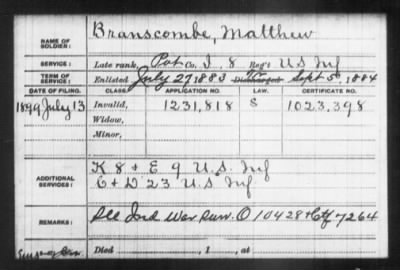 NAME OF SOLDIER: Branscombe, Matthew
SERVICE: Late rank, Pvt Co. I, 8 Reg't U S Inf
TERM OF SERVICE: Enlisted July 27 1883 Discharged Sept 5, 1884
DATE OF FILING. CLASS. APPLICATION NO. LAW. CERTIFICATE NO.
1899 July 13 Invalid, 1231,818 S 1023,398
Widow,
Minor,
ADDITIONAL SERVICES: K 8 + E 9 U.S. Inf
C + D 23 U S Inf
REMARKS: See Ind War Surv. O 10428 + Ctf 7264
Died , 1 , at